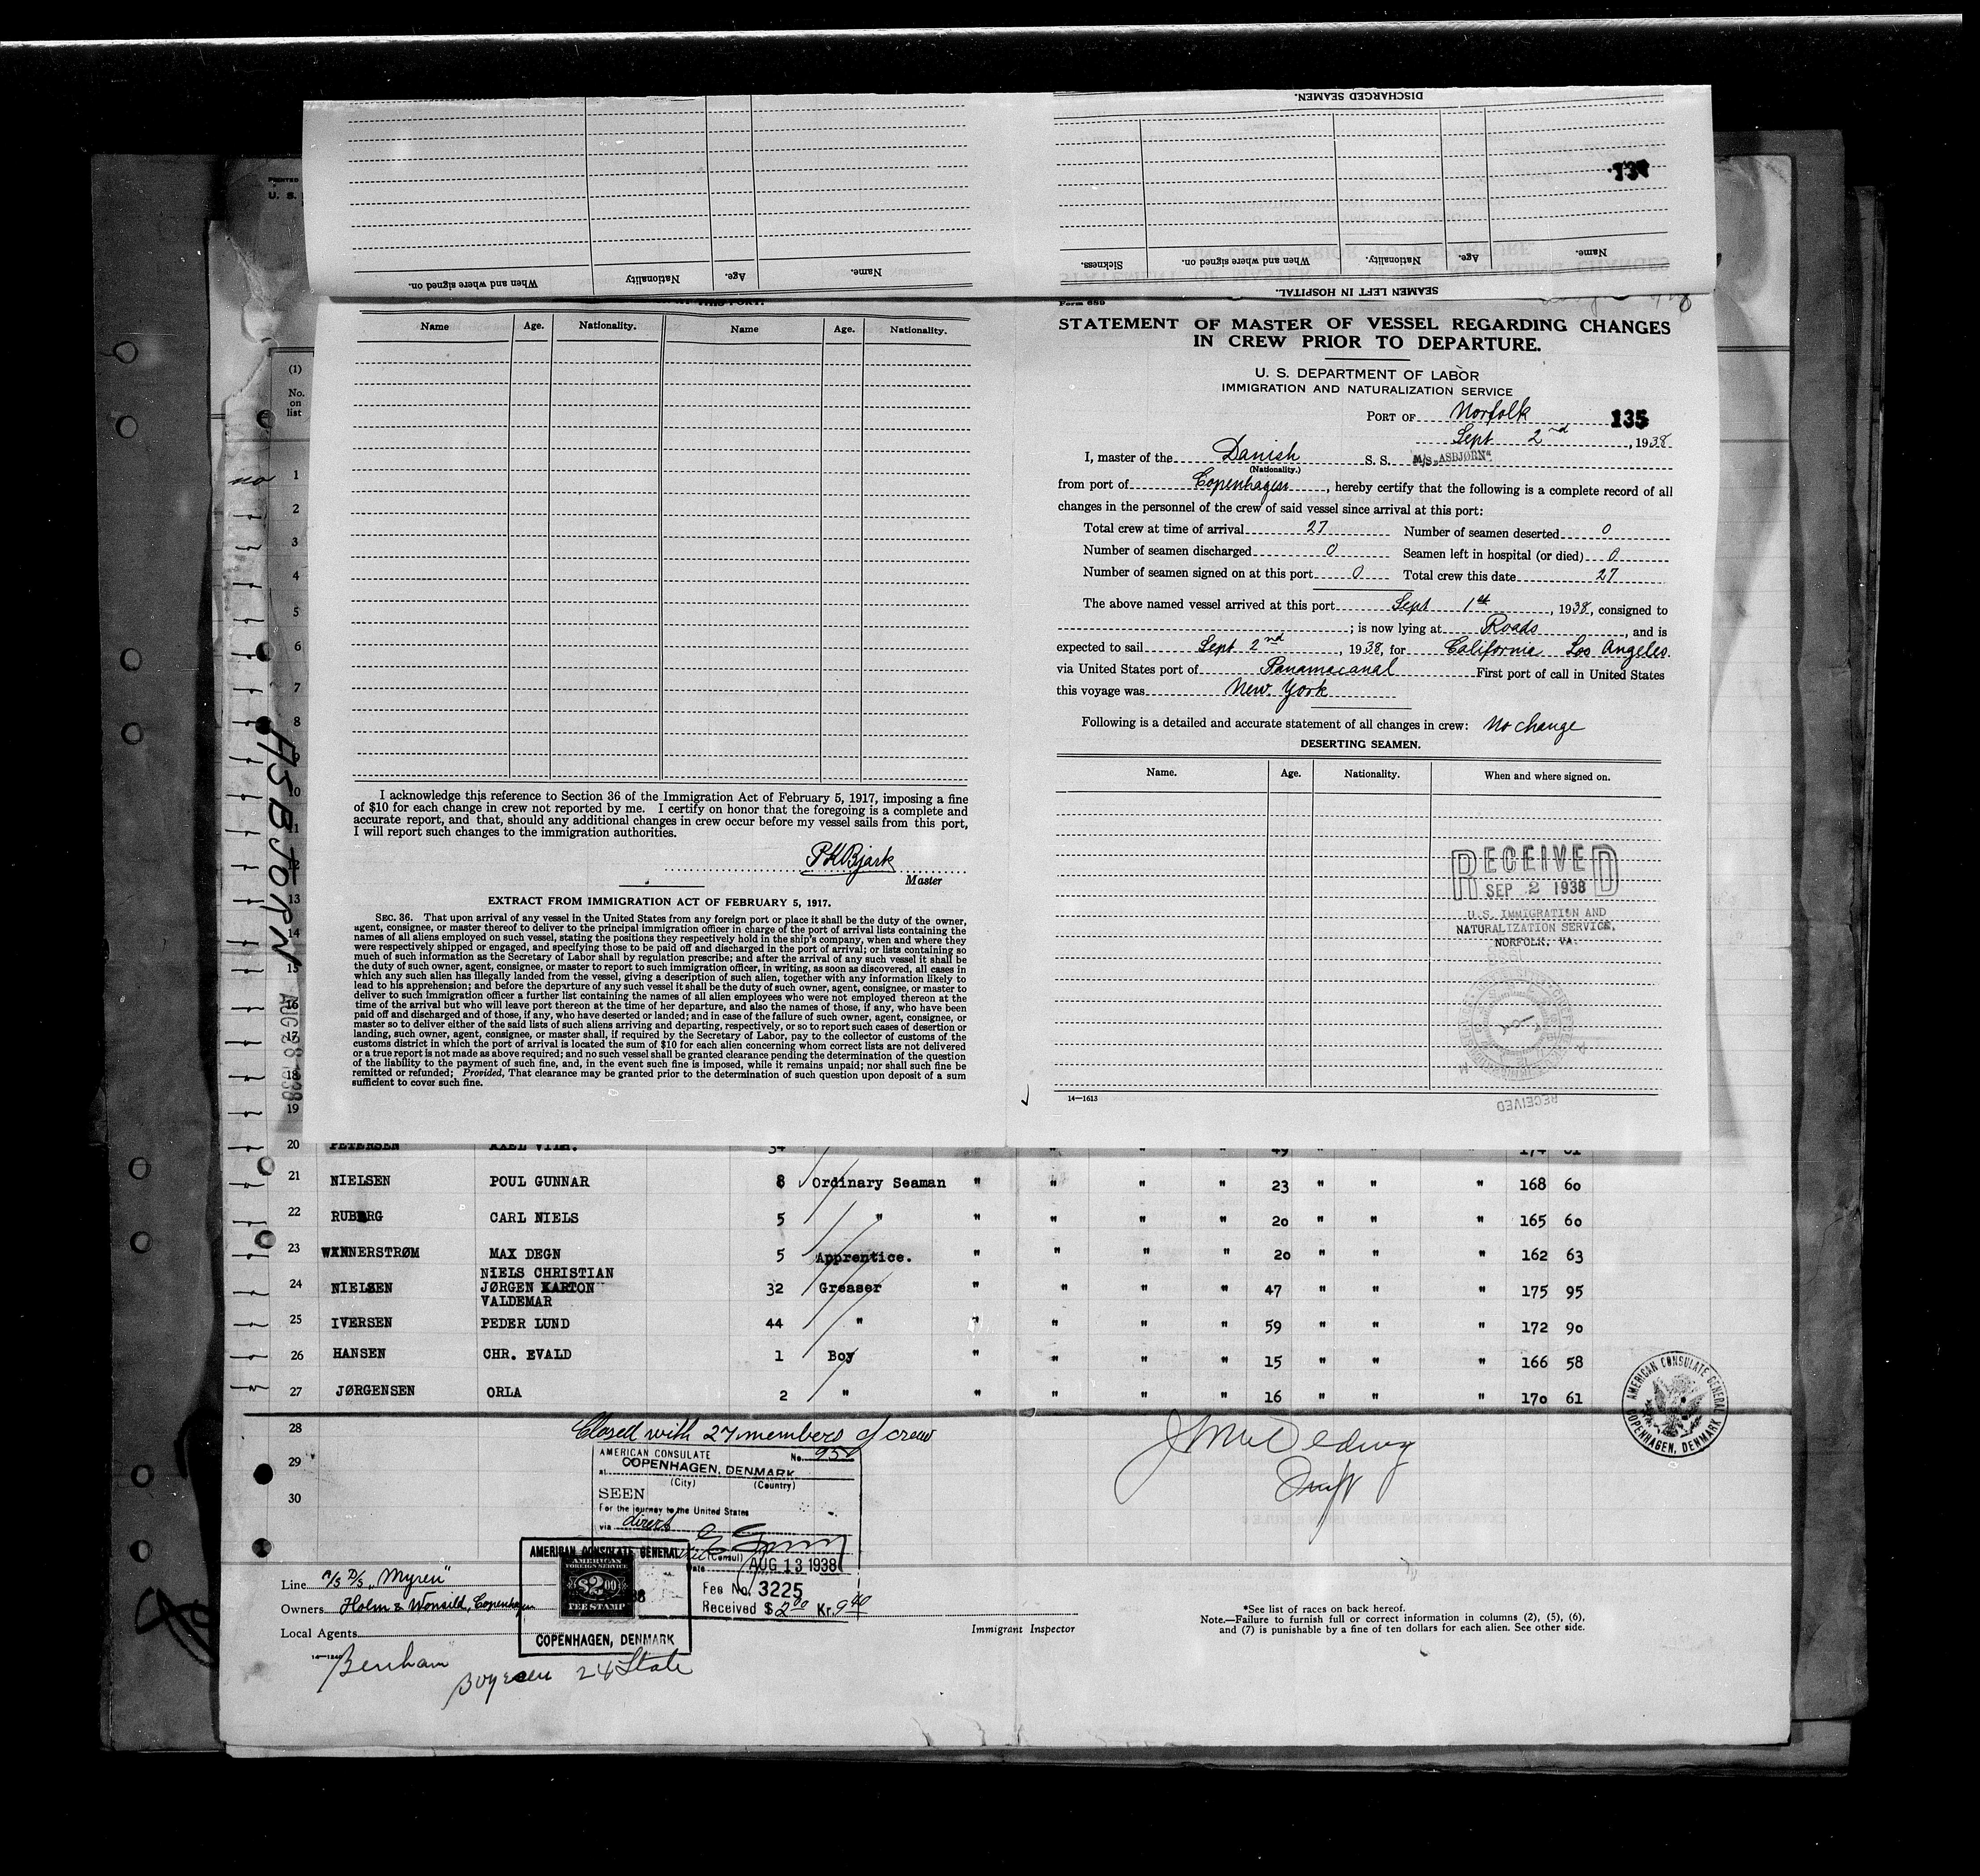 PRINTED
U. S.
DISCHARGED SEAMEN.
135
Name. Age. Nationality When and where signed on.
Name. Age. Nationality. When and where signed on. Sickness.
SEAMEN LEFT IN HOSPITAL.
THIS PORT.
Name Age. Nationality. Name Age. Nationality.
I acknowledge this reference to Section 36 of the Immigration Act of February 5, 1917, imposing a fine
of $10 for each change in crew not reported by me. I certify on honor that the foregoing is a complete and
accurate report, and that, should any additional changes in crew occur before my vessel sails from this port,
I will report such changes to the immigration authorities.
PKBjark
Master
EXTRACT FROM IMMIGRATION ACT OF FEBRUARY 5, 1917.
SEC. 36. That upon arrival of any vessel in the United States from any foreign port or place it shall be the duty of the owner,
agent, consignee, or master thereof to deliver to the principal immigration officer in charge of the port of arrival lists containing the
names of all aliens employed on such vessel, stating the positions they respectively hold in the ship's company, when and where they
were respectively shipped or engaged, and specifying those to be paid off and discharged in the port of arrival; or lists containing so
much of such information as the Secretary of Labor shall by regulation prescribe; and after the arrival of any such vessel it shall be
the duty of such owner, agent, consignee, or master to report to such immigration officer, in writing, as soon as discovered, all cases in
which any such alien has illegally landed from the vessel, giving a description of such alien, together with any information likely to
lead to his apprehension; and before the departure of any such vessel it shall be the duty of such owner, agent, consignee, or master to
deliver to such immigration officer a further list containing the names of all alien employees who were not employed thereon at the
time of the arrival but who will leave port thereon at the time of her departure, and also the names of those, if any, who have been
paid off and discharged and of those, if any, who have deserted or landed; and in case of the failure of such owner, agent, consignee, or
master so to deliver either of the said lists of such aliens arriving and departing, respectively, or so to report such cases of desertion or
landing, such owner, agent, consignee, or master shall, if required by the Secretary of Labor, pay to the collector of customs of the
customs district in which the port of arrival is located the sum of $10 for each alien concerning whom correct lists are not delivered
or a true report is not made as above required; and no such vessel shall be granted clearance pending the determination of the question
of the liability to the payment of such fine, and, in the event such fine is imposed, while it remains unpaid; nor shall such fine be
remitted or refunded; Provided, That clearance may be granted prior to the determination of such question upon deposit of a sum
sufficient to cover such fine.
Form 689
STATEMENT OF MASTER OF VESSEL REGARDING CHANGES
IN CREW PRIOR TO DEPARTURE.
U. S. DEPARTMENT OF LABOR
IMMIGRATION AND NATURALIZATION SERVICE
PORT OF Norfolk 135
Sept 2nd, 1938
I, master of the Danish S. S. M/S „ASBJØRN"
(Nationality.)
from port of Copenhagen, hereby certify that the following is a complete record of all
changes in the personnel of the crew of said vessel since arrival at this port:
Total crew at time of arrival 27 Number of seamen deserted 0
Number of seamen discharged 0 Seamen left in hospital (or died) 0
Number of seamen signed on at this port 0 Total crew this date 27
The above named vessel arrived at this port Sept 1st, 1938, consigned to
; is now lying at Roads, and is
expected to sail Sept 2nd, 1938, for California Los Angeles
via United States port of Panamacanal First port of call in United States
this voyage was New York
Following is a detailed and accurate statement of all changes in crew: No change
DESERTING SEAMEN.
Name. Age. Nationality. When and where signed on.
RECEIVED
SEP 2 1938
U.S. IMMIGRATION AND
NATURALIZATION SERVICE,
NORFOLK, VA.
RECEIVED
14—1613
(1)
No.
on
list
no
1
2
3
4
5
6
7
8
9
10
11
12
13
14
15
16
17
18
19
ASBJORN
AUG 28 1938
20 PETERSEN AXEL VILH. 34 49 " " " 174 61
21 NIELSEN POUL GUNNAR 8 Ordinary Seaman " " " " 23 " " " 168 60
22 RUBERG CARL NIELS 5 " " " " " 20 " " " 165 60
23 WENNERSTRØM MAX DEGN 5 Apprentice. " " " " 20 " " " 162 63
NIELS CHRISTIAN
24 NIELSEN JØRGEN KARTON 32 Greaser " " " " 47 " " " 175 95
VALDEMAR
25 IVERSEN PEDER LUND 44 " " " " " 59 " " " 172 90
26 HANSEN CHR. EVALD 1 Boy " " " " 15 " " " 166 58
27 JØRGENSEN ORLA 2 " " " " " 16 " " " 170 61
28 Closed with 27 members of crew
29
30
AMERICAN CONSULATE No. 950
at COPENHAGEN, DENMARK
(City) (Country)
SEEN
For the journey to the United States
via direct
(Consul)
Date AUG 13 1938
Fee No. 3225
Received $ 2.00 Kr. 9.40
AMERICAN CONSULATE GENERAL
AMERICAN
FOREIGN SERVICE
$2.00
FEE STAMP
COPENHAGEN, DENMARK
AMERICAN CONSULATE GENERAL
COPENHAGEN, DENMARK
Line A/S D/S „Myren"
Owners Holm & Wonsild, Copenhagen
Local Agents
14—1240
Benham
Boyesen 24 State
Immigrant Inspector
*See list of races on back hereof.
Note.—Failure to furnish full or correct information in columns (2), (5), (6),
and (7) is punishable by a fine of ten dollars for each alien. See other side.